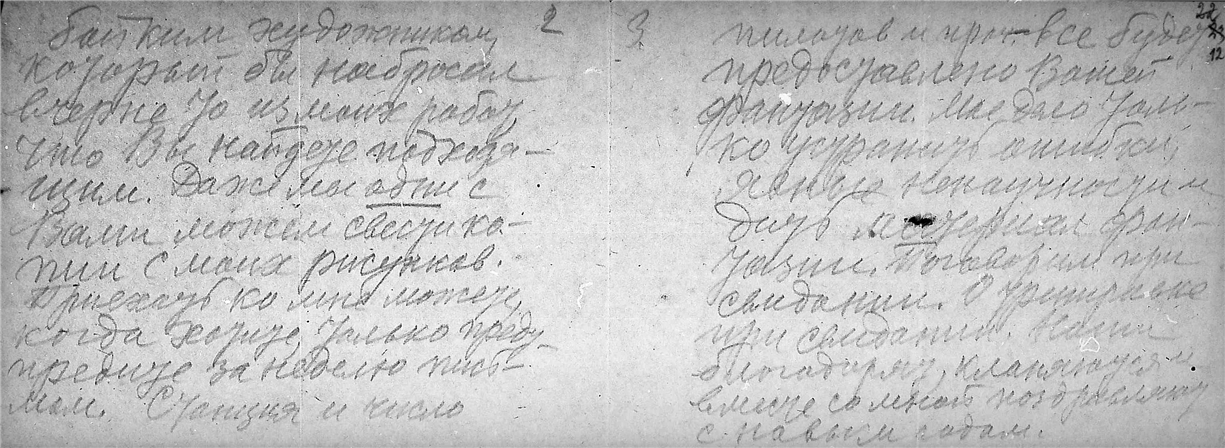 2
бойким художником,
который бы набросал
вчерне то из моих работ,
что Вы найдете подходя-
щим. Даже мы одни с
Вами можем свести ко-
пии с моих рисунков.
Приехать ко мне можете,
когда хотите, только преду-
предите за неделю пись-
мом. Станция и число
3
22
23
12
пилотов и проч. все будет
предоставлено Вашей
фантазии. Мое дело толь-
ко устранить ошибки,
явные ненаучности и
дать материал фан-
тазии. Поговорим при
свидании. О
при свидании. Наши
благодарят, кланяются и
вместе со мной поздравляют
с новым годом.